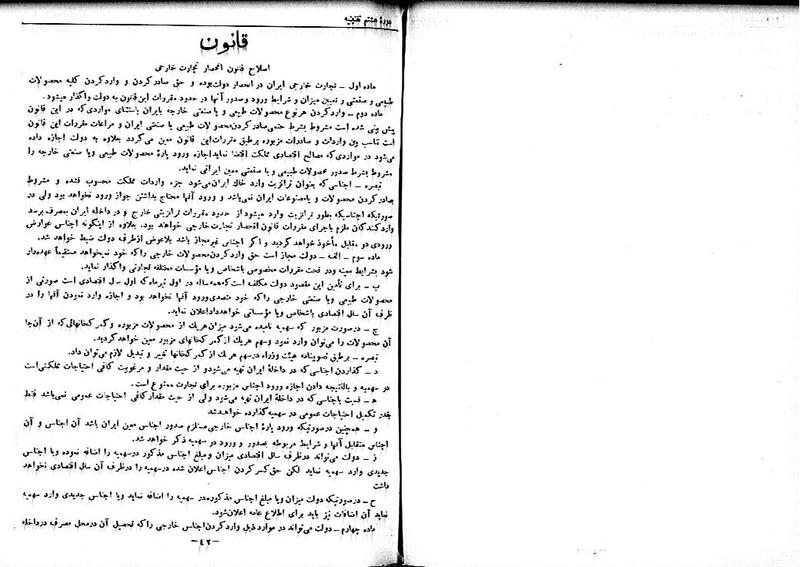 دورهٔ هشتم تقنینیه
قانون
اصلاح قانون انحصار تجارت خارجی
ماده اول – تجارت خارجی ایران در انحصار دولت بوده و حق صادر کردن و وارد کردن کلیه محصولات
طبیعی و صنعتی و تعیین میزان و شرایط ورود و صدور آنها در حدود مقررات این قانون به دولت واگذار میشود.
ماده دوم – وارد کردن هر نوع محصولات طبیعی و یا صنعتی خارجه بایران باستثنای مواردی که در این قانون
پیش بینی شده است مشروط بشرط حتمی صادر کردن محصولات طبیعی یا صنعتی ایران و مراعات مقررات این قانون
است تناسب بین واردات و صادرات مزبوره بر طبق مقررات این قانون معین می‌گردد بعلاوه به دولت اجازه داده
می‌شود در مواردی که مصالح اقتصادی مملکت اقتضا نماید اجازه ورود پارهٔ محصولات طبیعی ویا صنعتی خارجه را
مشروط بشرط صدور محصولات طبیعی و یا صنعتی معین ایرانی نماید.
تبصره – اجناسی که بعنوان ترانزیت وارد خاک ایران می‌شود جزء واردات مملکت محسوب نشده و مشروط
بصادر کردن محصولات و یا مصنوعات ایران نمی‌باشد و ورود آنها محتاج بداشتن جواز ورود نخواهد بود ولی در
صورتیکه اجناسیکه بطور ترانزیت وارد میشود از حدود مقررات ترانزیتی خارج و در داخله ایران بمصرف برسد
وارد کنندگان ملزم باجرای مقررات قانون انحصار تجارت خارجی خواهند بود. بعلاوه از اینگونه اجناس عوارض
ورودی دو مقابل مأخوذ خواهد گردید و اگر اجناس غیرمجاز باشد بلاعوض از طرف دولت ضبط خواهد شد.
ماده سوم – الف – دولت مجاز است حق وارد کردن محصولات خارجی را که خود نمیخواهد مستقیماً عهده‌دار
شود بشرایط معینه و در تحت مقررات مخصوص باشخاص ویا مؤسسات مختلفه تجارتی واگذار نماید.
ب – برای تأمین این مقصود دولت مکلف است که همه ساله در اول تیرماه که اول سال اقتصادی است صورتی از
محصولات طبیعی ویا صنعتی خارجی را که خود متصدی ورود آنها نخواهد بود و اجازه وارد نمودن آنها را در
ظرف آن سال اقتصادی باشخاص ویا مؤسساتی خواهد داد اعلان نماید.
ج – در صورت مزبور که سهمیه نامیده می‌شود میزان هر یک از محصولات مزبوره و گمرکخانهائی که از آن‌جا
آن محصولات را می‌توان وارد نمود وسهم هر یک از گمرکخانهای مزبور معین خواهد گردید.
تبصره – بر طبق تصویبنامه هیئت وزراء در سهم هر یک از گمرکخانها تغییر و تبدیل لازم می‌توان داد.
د – گذاردن اجناسی که در داخلهٔ ایران تهیه می‌شود و از حیث مقدار و مرغوبیت کافی احتیاجات مملکتی است
در سهمیه و بالنتیجه دادن اجازه ورود اجناس مزبوره برای تجارت ممنوع است.
ه – نسبت باجناسی که در داخلهٔ ایران تهیه می‌شود ولی از حیث مقدار کافی احتیاجات عمومی نمی‌باشد فقط
بقدر تکمیل احتیاجات عمومی در سهمیه گذارده خواهد شد
و – همچنین در صورتیکه ورود پارهٔ اجناس خارجی مستلزم صدور اجناس معین ایران باشد آن اجناس و آن
اجناس متقابل آنها و شرایط مربوطه بصدور و ورود در سهمیه ذکر خواهد شد.
ز – دولت می‌تواند در ظرف سال اقتصادی میزان و مبلغ اجناس مذکور در سهمیه را اضافه نموده ویا اجناس
جدیدی وارد سهمیه نماید لکن حق کسر کردن اجناس اعلان شده در سهمیه را در ظرف آن سال اقتصادی نخواهد
داشت
ح – در صورتیکه دولت میزان ویا مبلغ اجناس مذکوره در سهمیه را اضافه نماید ویا اجناس جدیدی وارد سهمیه
نماید آن اضافات نیز باید برای اطلاع عامه اعلان شود.
ماده چهارم – دولت می‌تواند در موارد ذیل وارد کردن اجناس خارجی را که تحصیل آن در محل مصرف در داخله
–٤٢–